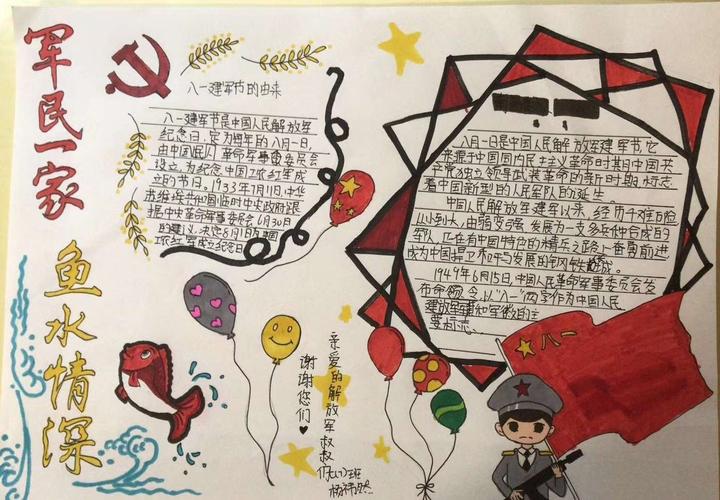 军民一家
鱼水情深
八一建军节的由来
八一建军节是中国人民解放军
纪念日,定为每年的八月一日,
由中国人民革命军事委员会
设立,为纪念中国工农红军成立
的节日。1933年7月11日,中华
苏维埃共和国临时中央政府根
据中央革命军事委员会6月30日
的建议,决定8月1日为中国
工农红军成立纪念日
八月一日是中国人民解放军建军节,它
来源于中国
产党独立领导武装革命的新时期,标志
着中国新型的人民军队的诞生。
中国人民解放军建军以来,经历千难万险
从小到大,由弱变强,发展为一支多兵种合成的
军队,正在有中国特色的精兵之路上奋勇前进
成为中国捍卫和平与发展的钢铁长城。
1949年6月15日,中国人民革命军事委员会发
布命令,以"八一"两字作为中国人民
解放军军旗和军徽的主
要标志。
八一
亲爱的解放军叔叔
谢谢您们